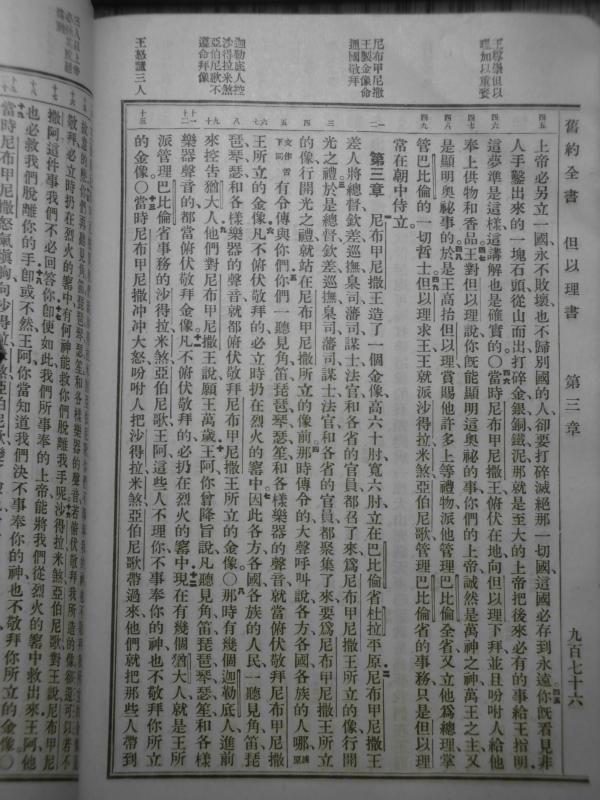 舊約全書 但以理書 第三章 九百七十六
王尊榮但以理加以重要
尼布甲尼撒王製金像命通國敬拜
迦勒底人控沙得拉米煞亞伯尼歌不遵命拜像
王怒讞三人
上帝必另立一國永不敗壞也不歸別國的人卻要打碎滅絕那一切國這國必存到永遠你既看見非
人手鑿出來的一塊石頭從山而出打碎金銀銅鐵泥那就是至大的上帝把後來必有的事給王指明
這夢準是這樣這講解也是確實的〇當時尼布甲尼撒王俯伏在地向但以理下拜並且吩咐人給他
奉上供物和香品王對但以理說你既能顯明這奧祕的事你們的上帝誠然是萬神之神萬王之主又
是顯明奧祕事的於是王高抬但以理賞賜他許多上等禮物派他管理巴比倫全省又立他爲總理掌
管巴比倫的一切哲士但以理求王王就派沙得拉米煞亞伯尼歌管理巴比倫省的事務只是但以理
常在朝中侍立
第三章 尼布甲尼撒王造了一個金像高六十肘寬六肘立在巴比倫省杜拉平原尼布甲尼撒王
差人將總督欽差巡撫臬司藩司謀士法官和各省的官員都召了來爲尼布甲尼撒王所立的像行開
光之禮於是總督欽差巡撫臬司藩司謀士法官和各省的官員都聚集了來要爲尼布甲尼撒王所立
的像行開光之禮就站在尼布甲尼撒所立的像前那時傳令的大聲呼叫說各方各國各族的人哪
有令傳與你們你們一聽見角笛琵琶琴瑟笙和各樣樂器的聲音就當俯伏敬拜尼布甲尼撒
王所立的金像凡不俯伏敬拜的必立時扔在烈火的窰中因此各方各國各族的人民一聽見角笛琵
琶琴瑟和各樣樂器的聲音就都俯伏敬拜尼布甲尼撒王所立的金像〇那時有幾個迦勒底人進前
來控告猶大人他們對尼布甲尼撒王說願王萬歲王阿你曾降旨說凡聽見角笛琵琶琴瑟笙和各樣
樂器聲音的都當俯伏敬拜金像凡不俯伏敬拜的必扔在烈火的窰中現在有幾個猶大人就是王所
派管理巴比倫省事務的沙得拉米煞亞伯尼歌王阿這些人不理你不事奉你的神也不敬拜你所立
的金像〇當時尼布甲尼撒沖沖大怒吩咐人把沙得拉米煞亞伯尼歌帶過來他們就把那些人帶到
敬拜必立時扔在烈火的窰中有何神能救你們脫離我手呢沙得拉米煞亞伯尼歌對王說尼布甲尼
撒阿這件事我們不必回答你卽便如此我們所事奉的上帝能將我們從烈火的窰中救出來王阿他
也必救我們脫離你的手卽或不然王阿你當知道我們決不事奉你的神也不敬拜你所立的金像〇
當時尼布甲尼撒怒氣滇胸向沙得拉米煞亞伯尼歌